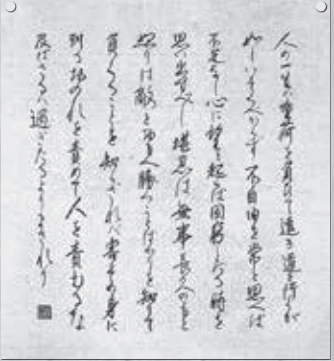 人の一生は重荷を負ひて遠き道を行くが
如しいそくへからす不自由を常と思へは
不足なし心に望み起らは困窮したる時を
思ひ出すへし堪忍は無事長久のもと
怒りは敵と思へ勝つことはかりを知りて
負くることを知らされは害其の身に
到るおのれを責めて人を責むるな
及はさるは過きたるよりまされり